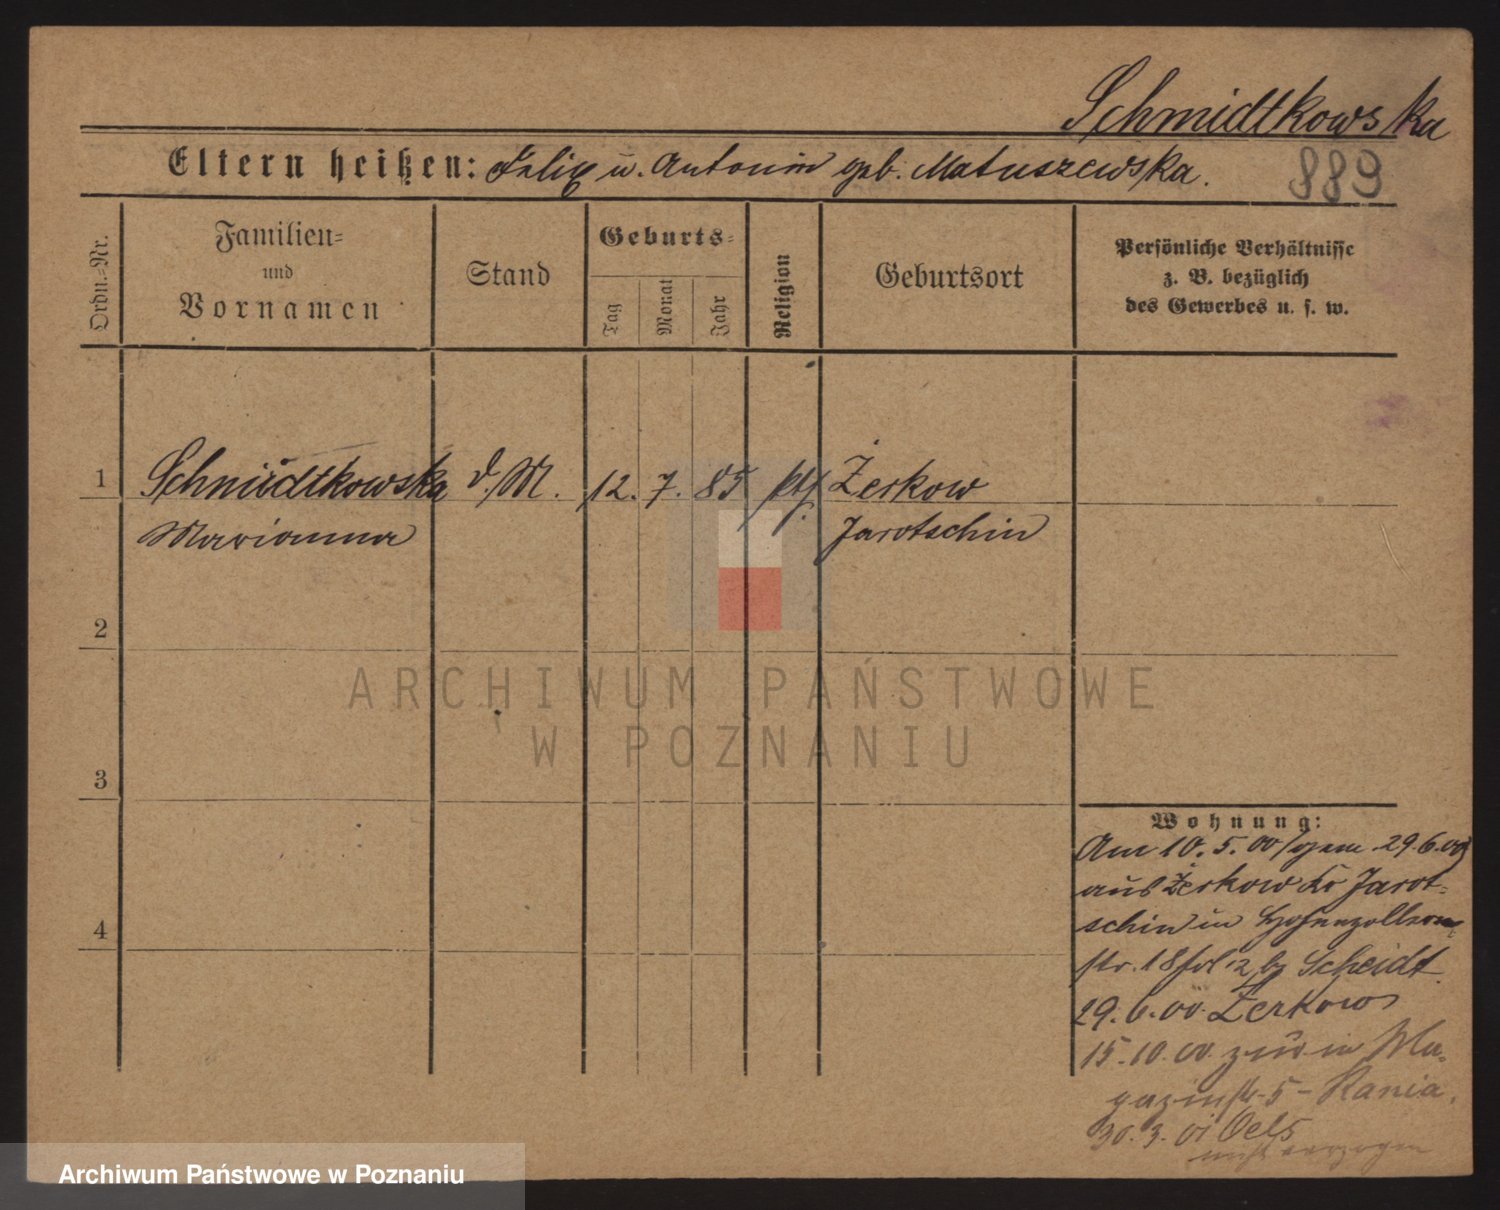 Schmidtkowska
Eltern heißen: Felix u. Antonin geb. Matuszewska.
889
Ordn.-Nr.
Familien-
und
Vornamen
Stand
Geburts-
Tag
Monat
Jahr
Religion
Geburtsort
Persönliche Verhältnisse
z. B. bezüglich
des Gewerbes u. s. w.
1 Schmidtkowska d. M. 12. 7. 85 kth. Żerkow
Marianna Jarotschin
2
3
4
ARCHIWUM PAŃSTWOWE
W POZNANIU
Wohnung:
Am 10. 5. 00 / gem. 29.6.00
aus Żerkow Kr Jarot-
schin in Hohenzollern
str. 18 bei Scheidt
29. 6. 00. Żerkow
15. 10. 00. zur. in Ma-
gazinstr. 5 - Kania.
30. 3. 01 Oels
nicht verzogen
Archiwum Państwowe w Poznaniu